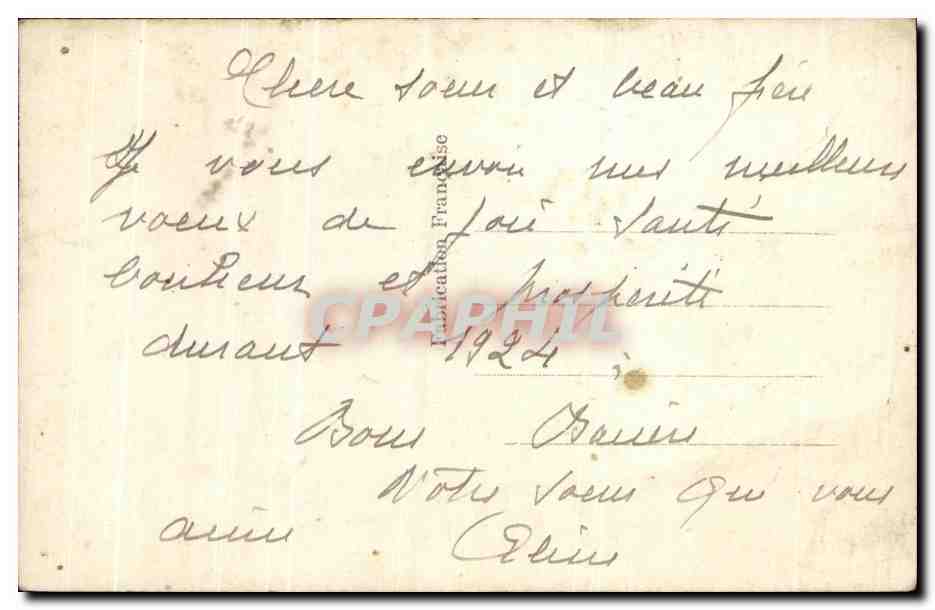 Chere soeur et beau frère
Je vous envoie mes meilleurs
voeux de joie santé
bonheur et prosperité
durant 1924
Bons Baisers
Votre soeur qui vous
aime Celine
Fabrication Française
CPAPHIL